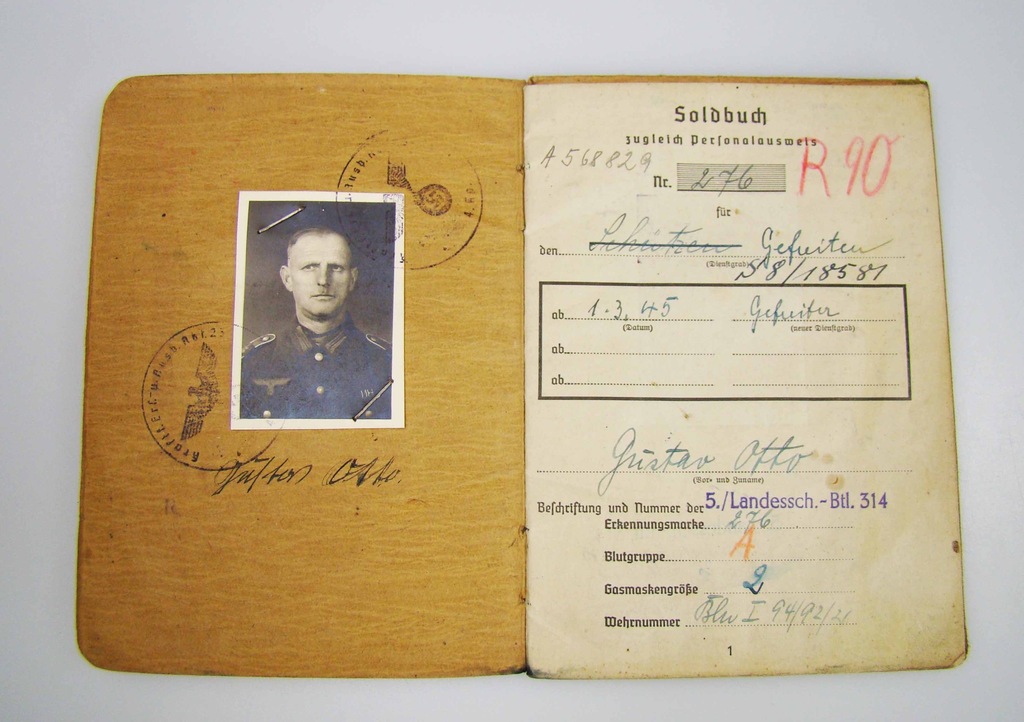 Kraftf. Ers.-u. Ausb. Abt. 23
Gustav Otto.
Soldbuch
zugleich Personalausweis
A 568829
R 90
Nr. 276
für
den Schützen Gefreiten
(Dienstgrad)
S8/18581
ab 1.3.45 Gefreiter
(Datum) (neuer Dienstgrad)
ab
ab
Gustav Otto
(Vor- und Zuname)
Beschriftung und Nummer der 5./Landessch.-Btl. 314
Erkennungsmarke 276
Blutgruppe A
Gasmaskengröße 2
Wehrnummer Bln I
1